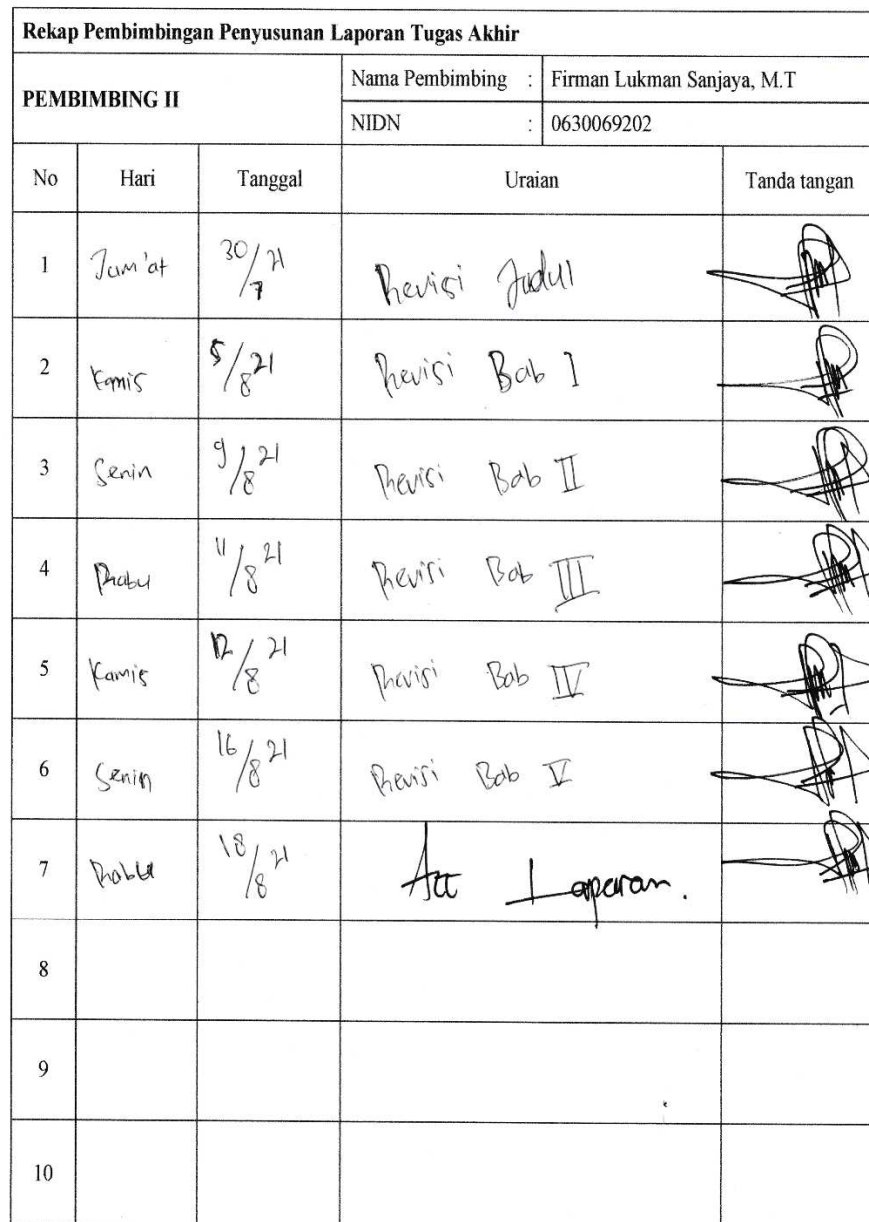 Rekap Pembimbingan Penyusunan Laporan Tugas Akhir
PEMBIMBING II
Nama Pembimbing : Firman Lukman Sanjaya, M.T
NIDN : 0630069202
No Hari Tanggal Uraian Tanda tangan
1 Jum'at 30/7 21 Revisi Judul
2 Kamis 5/8 21 Revisi Bab I
3 Senin 9/8 21 Revisi Bab II
4 Rabu 11/8 21 Revisi Bab III
5 Kamis 12/8 21 Revisi Bab IV
6 Senin 16/8 21 Revisi Bab V
7 Rabu 18/8 21 Acc Laporan.
8
9
10